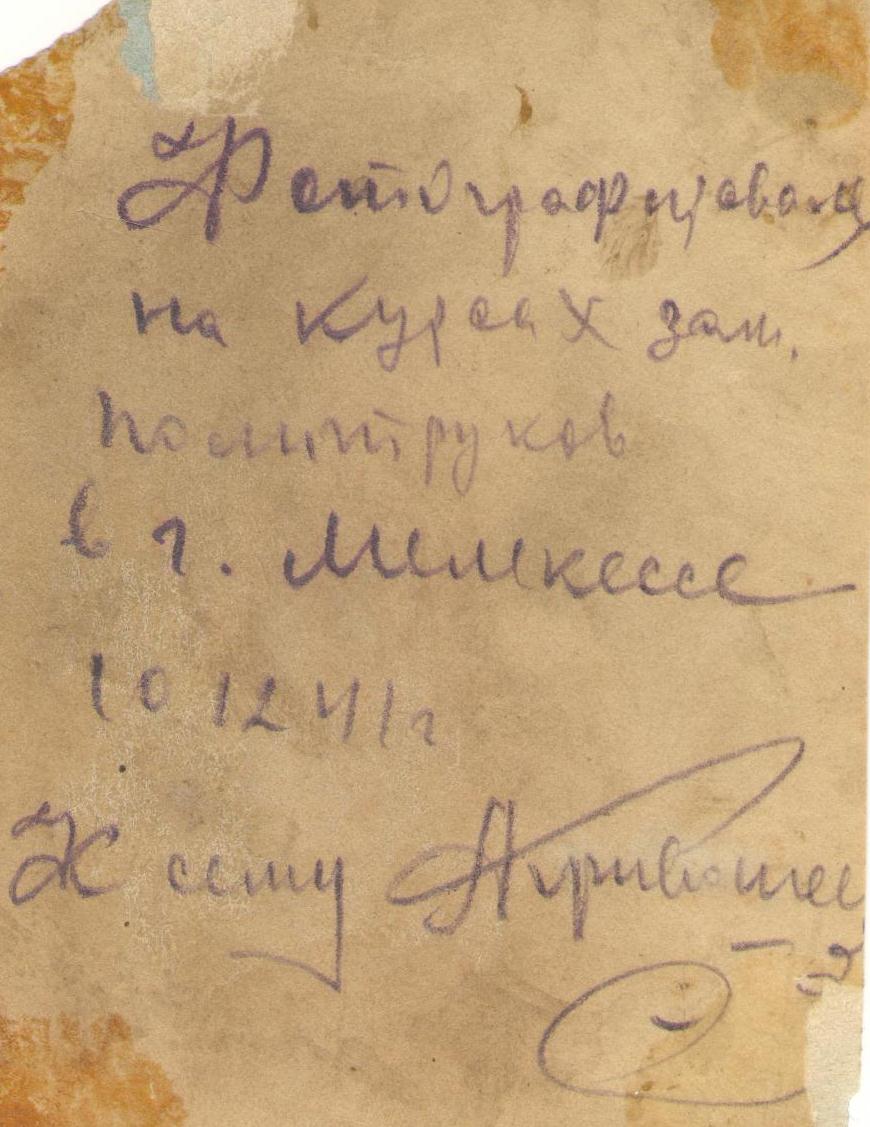 Фотографировался
на курсах зам.
политруков
в г. Мелекессе
10 12 41 г
К сему АКривошее